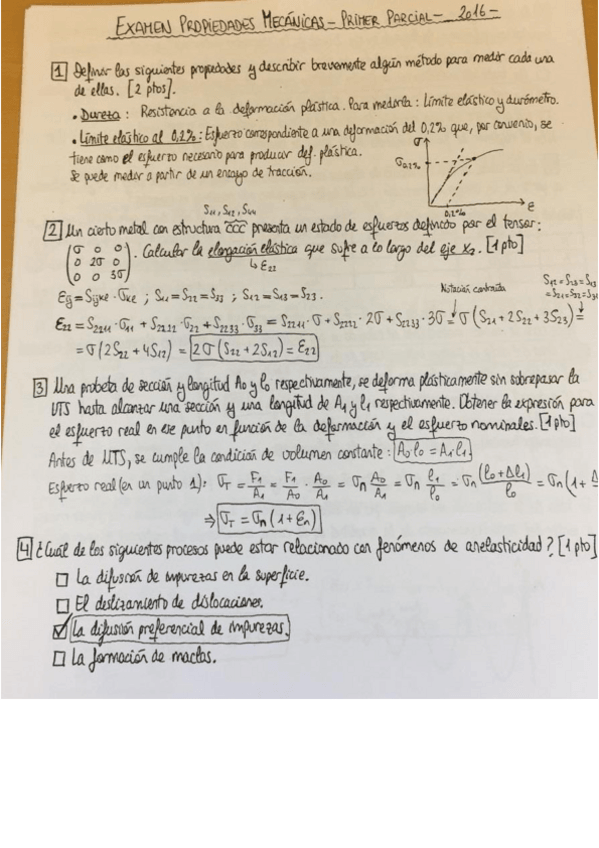 EXAMEN PROPIEDADES MECÁNICAS - PRIMER PARCIAL - 2016 -
1 Definir las siguientes propiedades y describir brevemente algún método para medir cada una
de ellas. [2 ptos].
• Dureza : Resistencia a la deformación plástica. Para medirla : Límite elástico y durómetro.
• Límite elástico al 0,2% : Esfuerzo correspondiente a una deformación del 0,2% que, por convenio, se
tiene como el esfuerzo necesario para producir def. plástica.
Se puede medir a partir de un ensayo de tracción.
σ
σ0,2%
0,2%
ε
S11, S12, S44
2 Un cierto metal con estructura CCC presenta un estado de esfuerzos definido por el tensor:
(σ 0 0
0 2σ 0
0 0 3σ). Calcular la elongación elástica que sufre a lo largo del eje x2. [1 pto]
↳ ε22
εij = Sijkl · σkl ; S11 = S22 = S33 ; S12 = S13 = S23.
Notación contraída
S12 = S23 = S13
= S21 = S32 = S31
ε22 = S2211 · σ11 + S2222 · σ22 + S2233 · σ33 = S2211 · σ + S2222 · 2σ + S2233 · 3σ = σ(S21 + 2S22 + 3S23) =
= σ(2S22 + 4S12) = 2σ(S22 + 2S12) = ε22
3 Una probeta de sección y longitud A0 y l0 respectivamente, se deforma plásticamente sin sobrepasar la
UTS hasta alcanzar una sección y una longitud de A1 y l1 respectivamente. Obtener la expresión para
el esfuerzo real en ese punto en función de la deformación y el esfuerzo nominales. [1 pto]
Antes de UTS, se cumple la condición de volumen constante : A0 l0 = A1 l1
Esfuerzo real (en un punto 1) : σT = F1/A1 = F1/A0 · A0/A1 = σn A0/A1 = σn l1/l0 = σn (l0 + Δl1)/l0 = σn (1 + Δ
⇒ σT = σn (1 + εn)
4 ¿Cuál de los siguientes procesos puede estar relacionado con fenómenos de anelasticidad? [1 pto]
☐ La difusión de impurezas en la superficie.
☐ El deslizamiento de dislocaciones.
☑ La difusión preferencial de impurezas.
☐ La formación de maclas.